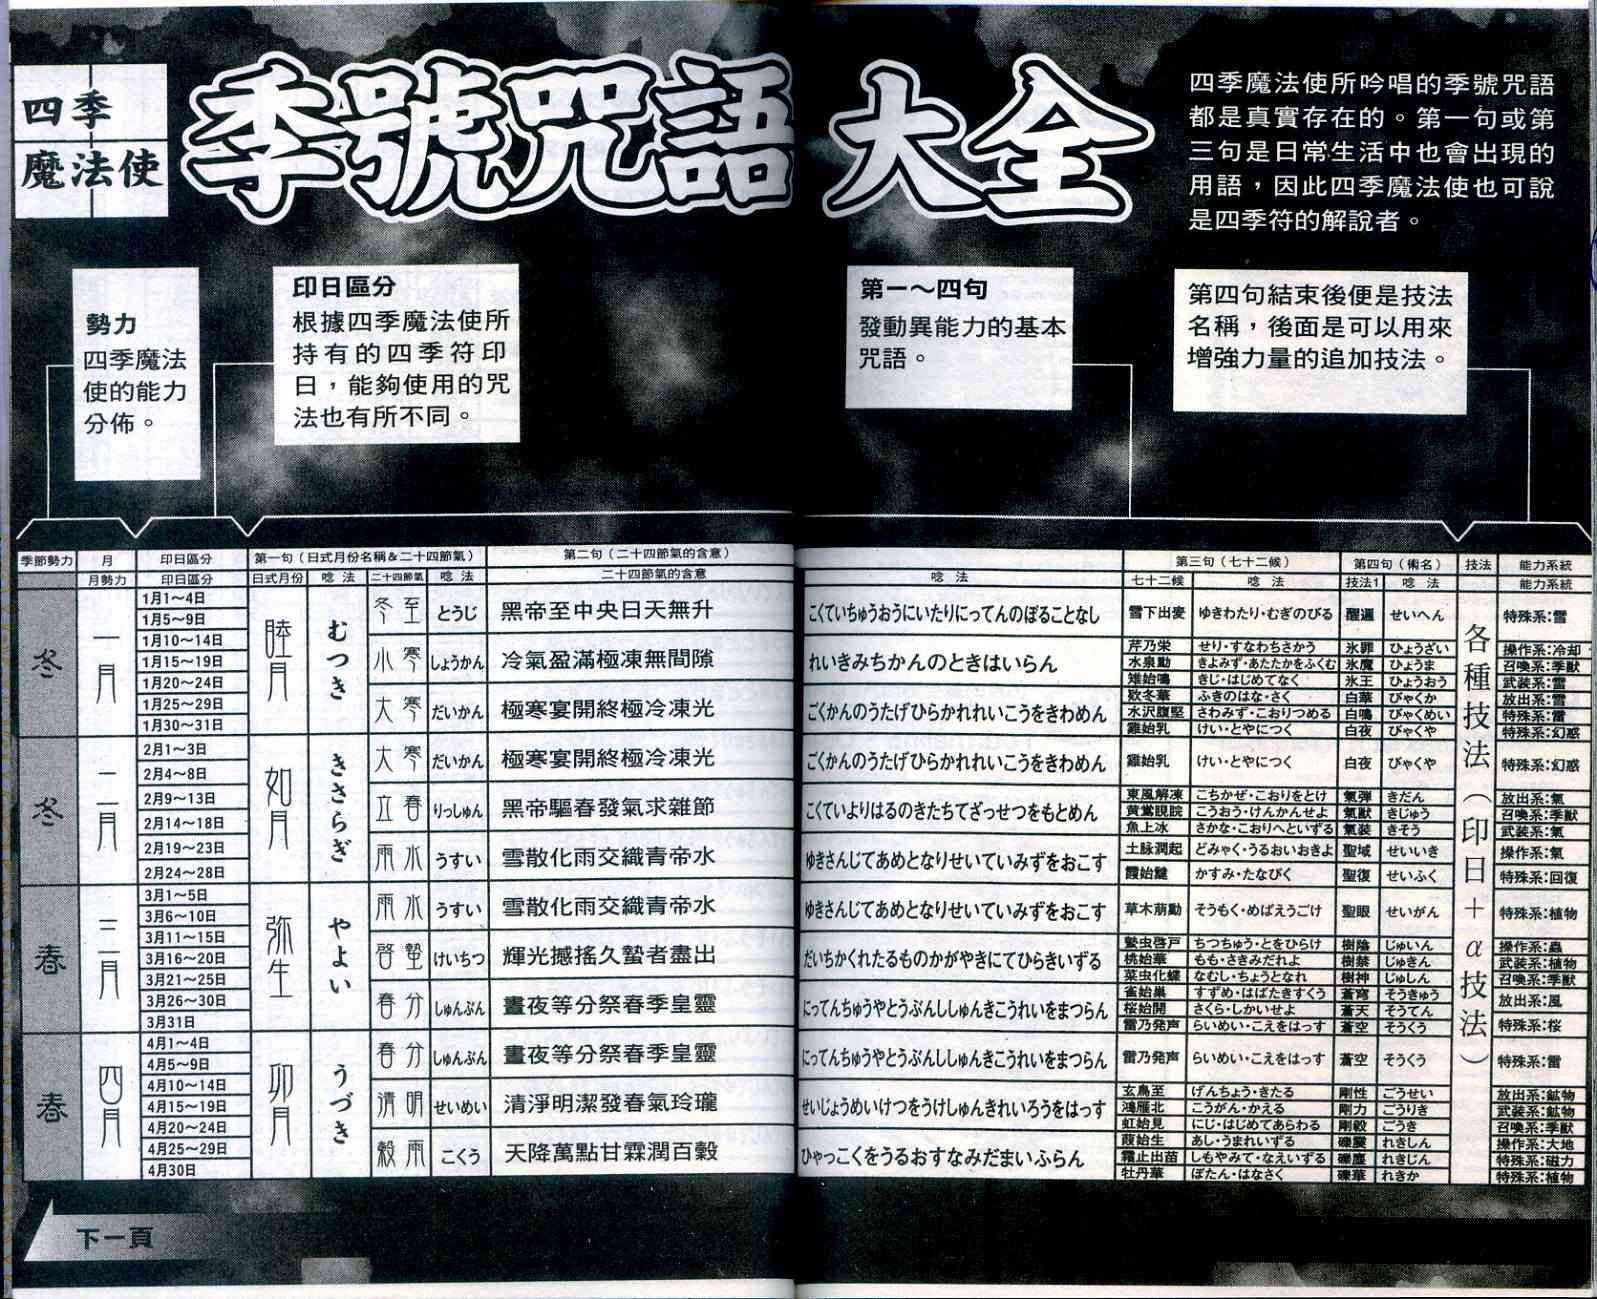 四季
魔法使
季號咒語大全
四季魔法使所吟唱的季號咒語
都是真實存在的。第一句或第
三句是日常生活中也會出現的
用語，因此四季魔法使也可說
是四季符的解說者。
勢力
四季魔法
使的能力
分佈。
印日區分
根據四季魔法使所
持有的四季符印
日，能夠使用的咒
法也有所不同。
第一～四句
發動異能力的基本
咒語。
第四句結束後便是技法
名稱，後面是可以用來
增強力量的追加技法。
季節勢力 月 印日區分 第一句（日式月份名稱&二十四節氣） 第二句（二十四節氣的含意） 第三句（七十二候） 第四句（術名） 技法 能力系統
月勢力 印日區分 日式月份 唸法 二十四節氣 唸法 二十四節氣的含意 唸法 七十二候 唸法 技法1 唸法 能力系統
冬 一月 睦月 むつき
1月1～4日
1月5～9日
1月10～14日
1月15～19日
1月20～24日
1月25～29日
1月30～31日
冬至 とうじ 黑帝至中央日天無升 こくていちゅうおうにいたりにってんのぼることなし
小寒 しょうかん 冷氣盈滿極凍無間隙 れいきみちかんのときはいらん
大寒 だいかん 極寒宴開終極冷凍光 ごくかんのうたげひらかれれいこうをきわめん
雪下出麦 ゆきわたり･むぎのびる 醒遍 せいへん 特殊系:雪
芹乃栄 せり･すなわちさかう 氷罪 ひょうざい 操作系:冷却
水泉動 きよみず･あたたかをふくむ 氷魔 ひょうま 召喚系:季獸
雉始鳴 きじ･はじめてなく 氷王 ひょうおう 武装系:雪
欵冬華 ふきのはな･さく 白華 びゃくか 放出系:雪
水沢腹堅 さわみず･こおりつめる 白鳴 びゃくめい 特殊系:雷
雞始乳 けい･とやにつく 白夜 びゃくや 特殊系:幻惑
冬 二月 如月 きさらぎ
2月1～3日
2月4～8日
2月9～13日
2月14～18日
2月19～23日
2月24～28日
大寒 だいかん 極寒宴開終極冷凍光 ごくかんのうたげひらかれれいこうをきわめん
立春 りっしゅん 黑帝驅春發氣求雜節 こくていよりはるのきたちてざっせつをもとめん
雨水 うすい 雪散化雨交織青帝水 ゆきさんじてあめとなりせいていみずをおこす
雞始乳 けい･とやにつく 白夜 びゃくや 特殊系:幻惑
東風解凍 こちかぜ･こおりをとけ 氣弾 きだん 放出系:氣
黄鶯睍睆 こうおう･けんかんせよ 氣獸 きじゅう 召喚系:季獸
魚上冰 さかな･こおりへといずる 氣装 きそう 武装系:氣
土脉潤起 どみゃく･うるおいおきよ 聖域 せいいき 操作系:氣
霞始靆 かすみ･たなびく 聖復 せいふく 特殊系:回復
春 三月 弥生 やよい
3月1～5日
3月6～10日
3月11～15日
3月16～20日
3月21～25日
3月26～30日
3月31日
雨水 うすい 雪散化雨交織青帝水 ゆきさんじてあめとなりせいていみずをおこす
啓蟄 けいちつ 輝光撼搖久蟄者盡出 だいちかくれたるものかがやきにてひらきいずる
春分 しゅんぶん 晝夜等分祭春季皇靈 にってんちゅうやとうぶんししゅんきこうれいをまつらん
草木萠動 そうもく･めばえうごけ 聖眼 せいがん 特殊系:植物
蟄虫啓戸 ちつちゅう･とをひらけ 樹陰 じゅいん 操作系:蟲
桃始華 もも･さきみだれよ 樹禁 じゅきん 武装系:植物
菜虫化蝶 なむし･ちょうとなれ 樹神 じゅしん 召喚系:季獸
雀始巣 すずめ･はばたきすくう 蒼穹 そうきゅう 放出系:風
桜始開 さくら･しかいせよ 蒼天 そうてん 特殊系:桜
雷乃発声 らいめい･こえをはっす 蒼空 そうくう
春 四月 卯月 うづき
4月1～4日
4月5～9日
4月10～14日
4月15～19日
4月20～24日
4月25～29日
4月30日
春分 しゅんぶん 晝夜等分祭春季皇靈 にってんちゅうやとうぶんししゅんきこうれいをまつらん
清明 せいめい 清淨明潔發春氣玲瓏 せいじょうめいけつをうけしゅんきれいろうをはっす
穀雨 こくう 天降萬點甘霖潤百穀 ひゃっこくをうるおすなみだまいふらん
雷乃発声 らいめい･こえをはっす 蒼空 そうくう 特殊系:雷
玄鳥至 げんちょう･きたる 剛性 ごうせい 放出系:鉱物
鴻雁北 こうがん･かえる 剛力 ごうりき 武装系:鉱物
虹始見 にじ･はじめてあらわる 剛毅 ごうき 召喚系:季獸
葭始生 あし･うまれいずる 礫震 れきしん 操作系:大地
霜止出苗 しもやみて･なえいずる 礫塵 れきじん 特殊系:磁力
牡丹華 ぼたん･はなさく 礫華 れきか 特殊系:植物
各種技法（印日＋α技法）
下一頁